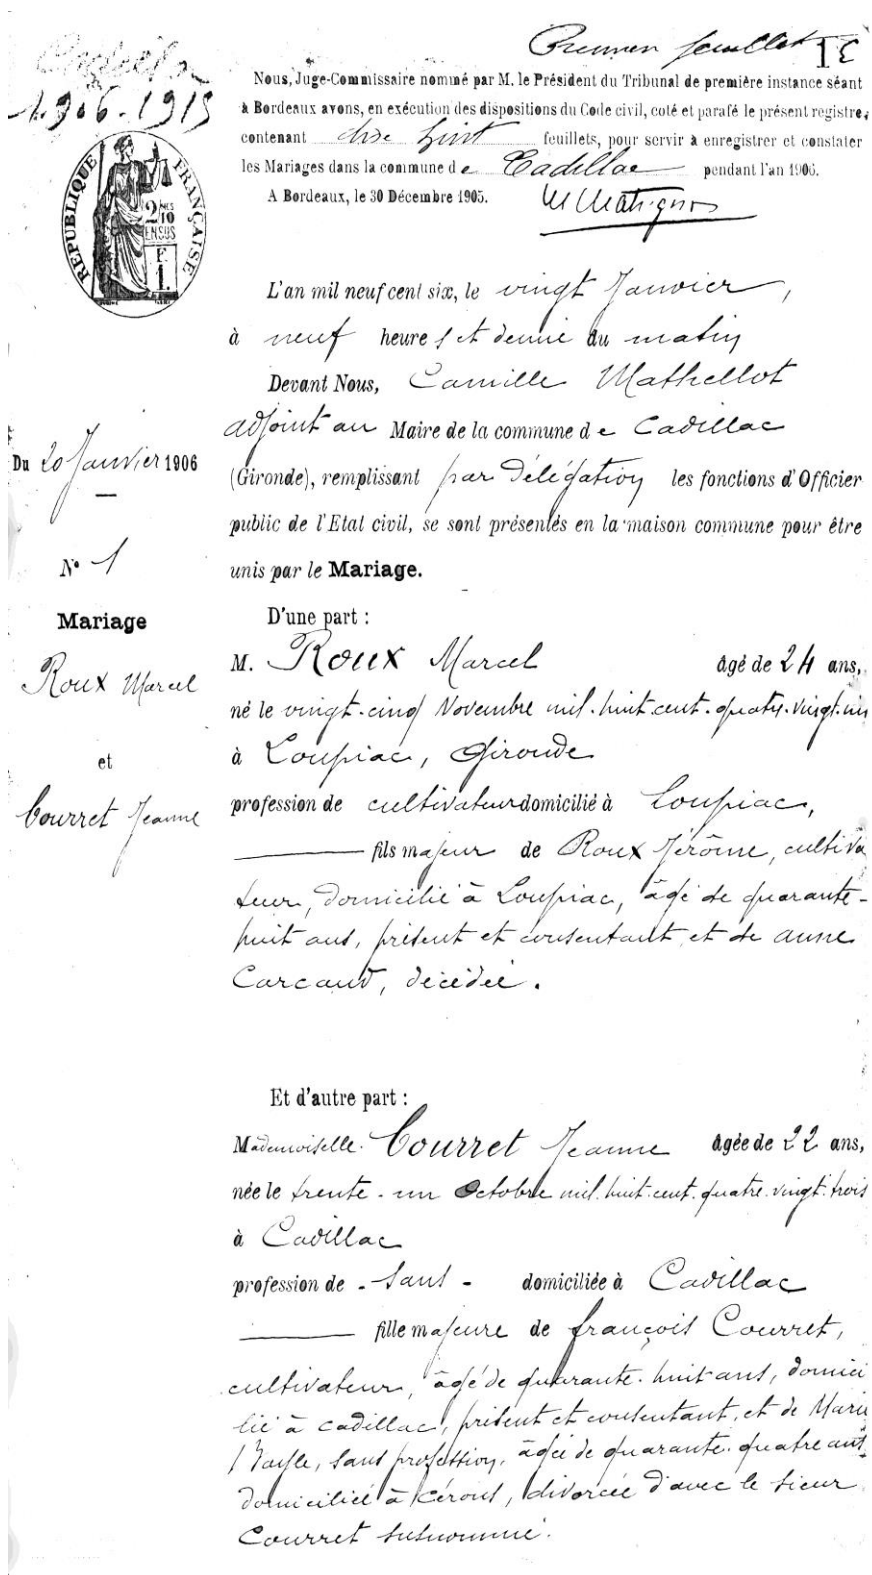 Premier feuillet
1906-1915
Nous, Juge-Commissaire nommé par M. le Président du Tribunal de première instance séant
à Bordeaux avons, en exécution des dispositions du Code civil, coté et parafé le présent registre,
contenant dix huit feuillets, pour servir à enregistrer et constater
les Mariages dans la commune de Cadillac pendant l'an 1906.
A Bordeaux, le 30 Décembre 1905.
RÉPUBLIQUE FRANÇAISE
2/10
EN SUS
F.
1.
L'an mil neuf cent six, le vingt Janvier,
à neuf heures et demie du matin
Devant Nous, Camille Mathellot
adjoint au Maire de la commune de Cadillac
Du 20 Janvier 1906
(Gironde), remplissant par délégation les fonctions d'Officier
public de l'Etat civil, se sont présentés en la maison commune pour être
N° 1
unis par le Mariage.
Mariage
D'une part :
Roux Marcel
M. Roux Marcel âgé de 24 ans,
né le vingt-cinq Novembre mil-huit-cent-quatre-vingt-un
et
à Loupiac, Gironde
Courret Jeanne
profession de cultivateur domicilié à Loupiac,
fils majeur de Roux Jérôme, cultiva
teur, domicilié à Loupiac, âgé de quarante-
huit ans, présent et consentant, et de Anne
Carcaud, décédée.
Et d'autre part :
Mademoiselle Courret Jeanne âgée de 22 ans,
née le trente-un Octobre mil-huit-cent-quatre-vingt-trois
à Cadillac
profession de - sans - domiciliée à Cadillac
fille majeure de françois Courret,
cultivateur, âgé de quarante-huit ans, domici
lié à Cadillac, présent et consentant, et de Marie
Bayle, sans profession, âgée de quarante-quatre ans,
domiciliée à Cérons, divorcée d'avec le sieur
Courret susnommé.